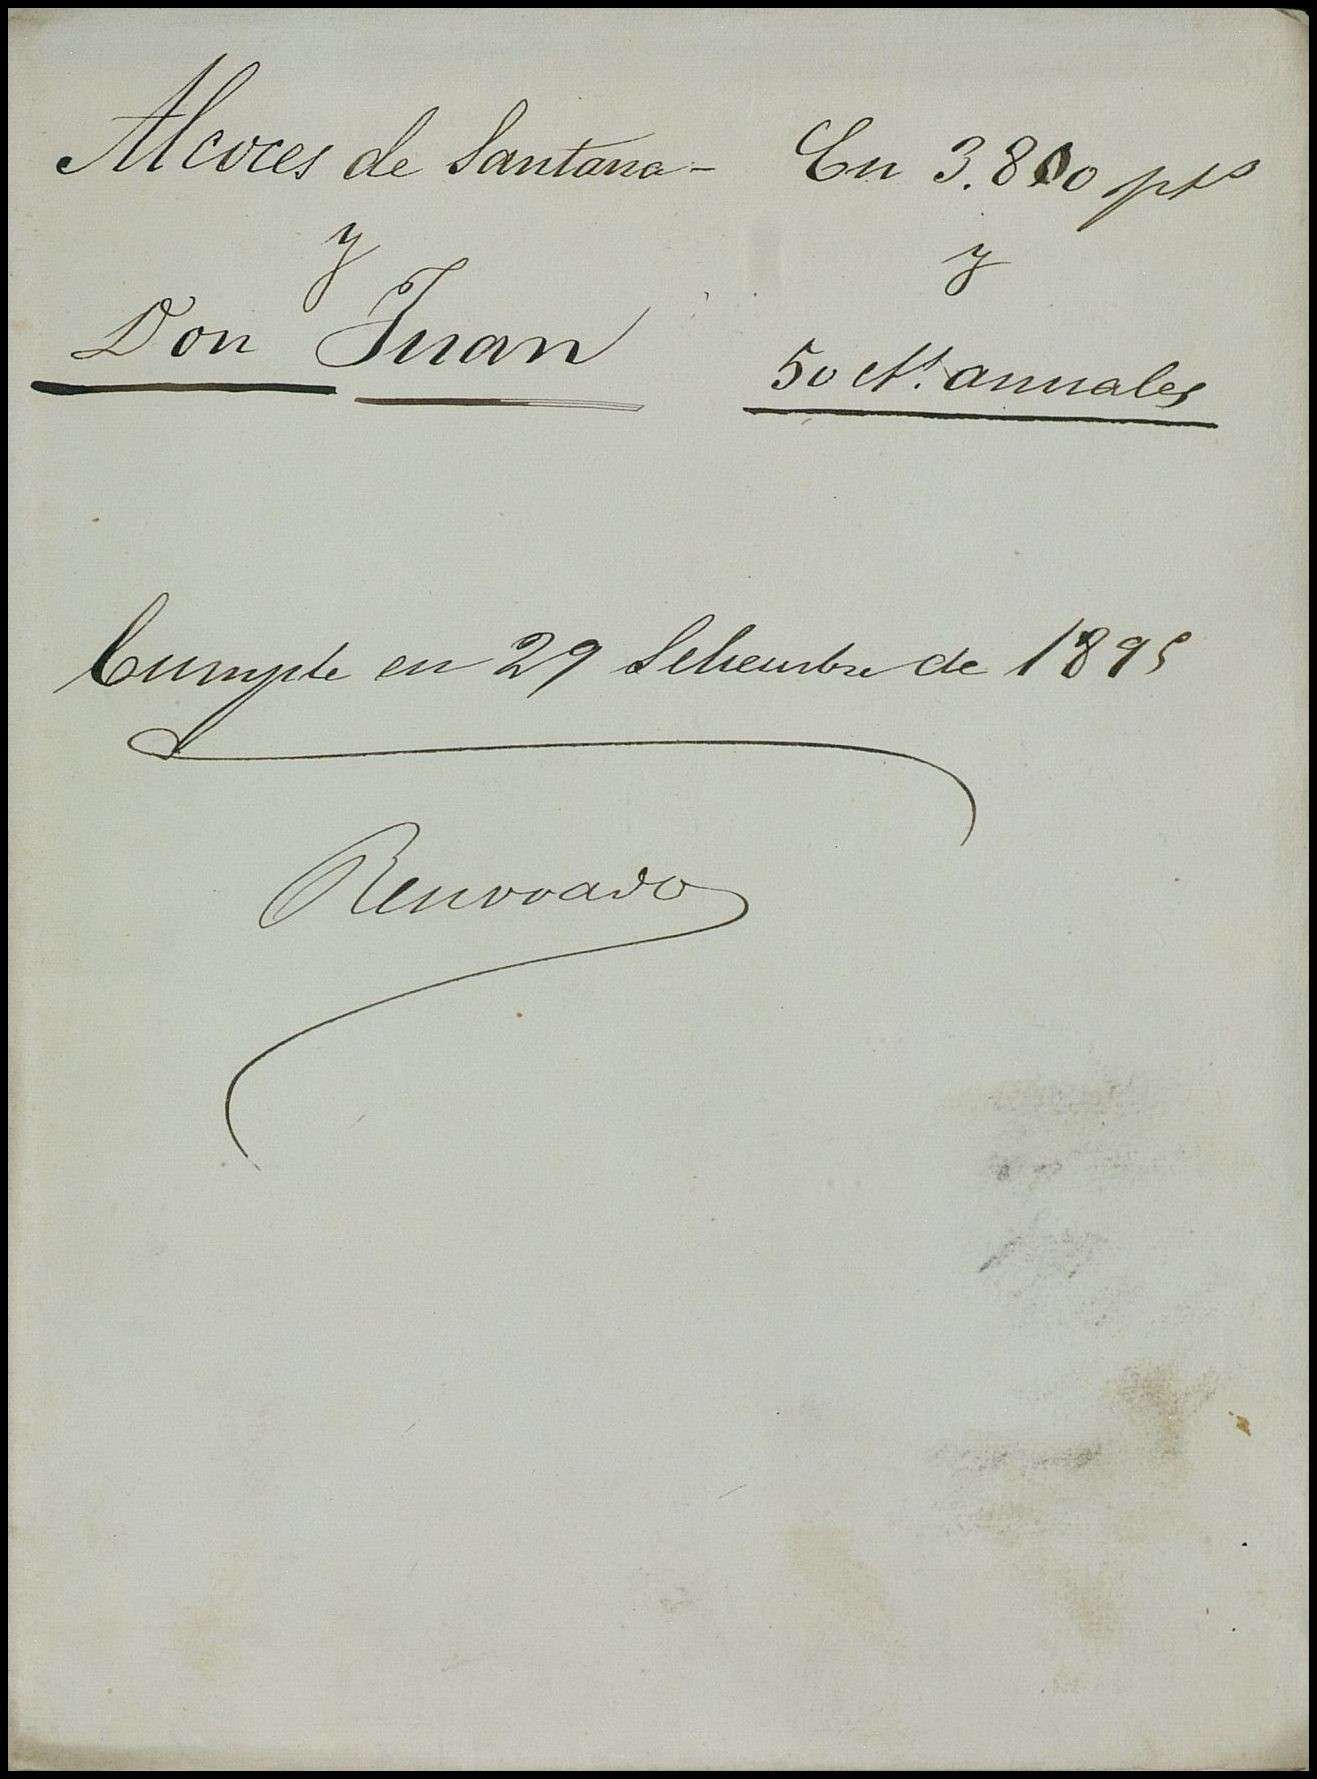 Alcores de Santana - En 3.800 pts
y y
Don Juan 50 cts. annuales
Cumple en 29 Setiembre de 1895
Renovado